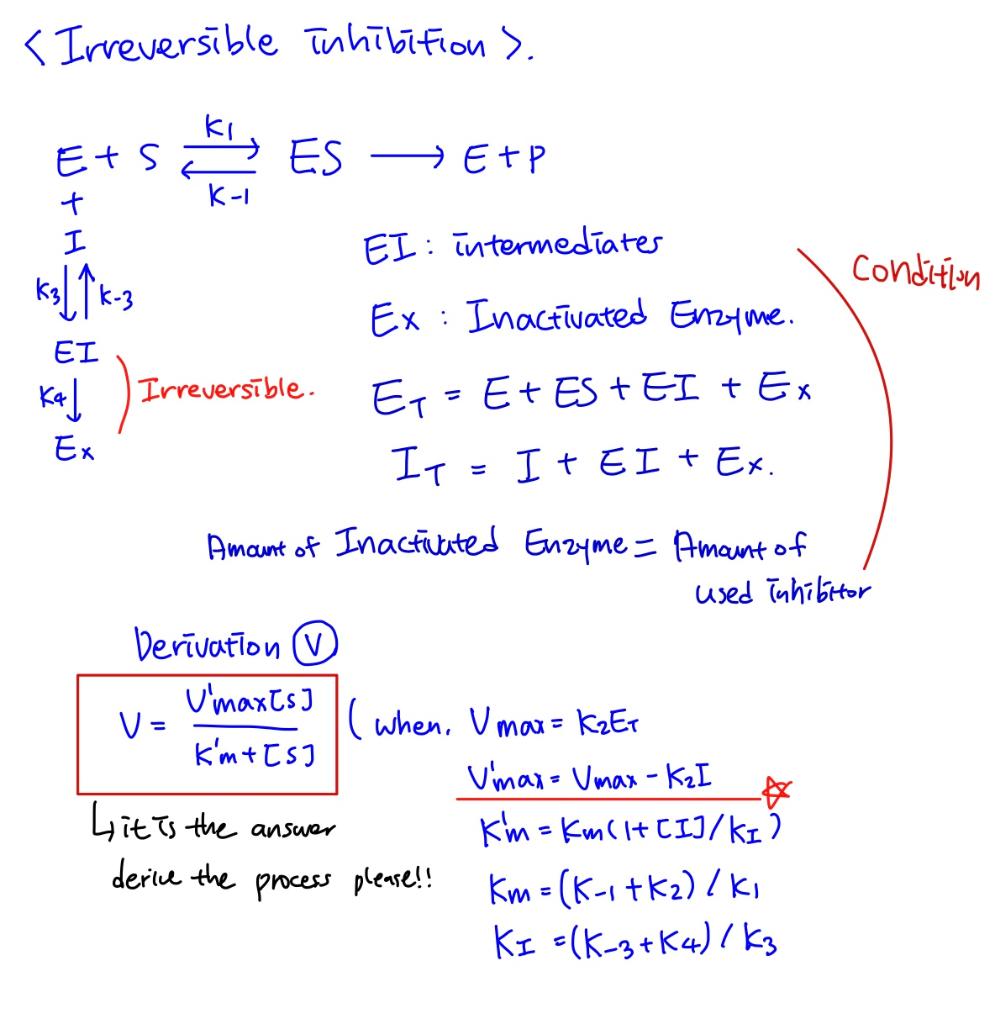 < Irreversible inhibition >.
K1
E + S ⇌ ES → E + P
K-1
+
I
K3 ↓↑ K-3
EI
K4 ↓
Ex
) Irreversible.
EI : intermediates
Ex : Inactivated Enzyme.
ET = E + ES + EI + Ex
IT = I + EI + Ex.
Amount of Inactivated Enzyme = Amount of
used inhibitor
Condition
Derivation V
V = V'max[S] / K'm + [S]
( when, Vmax = K2ET
V'max = Vmax - K2I ☆
K'm = Km(1 + [I] / KI )
Km = (K-1 + K2) / K1
KI = (K-3 + K4) / K3
↳ it is the answer
derive the process please!!